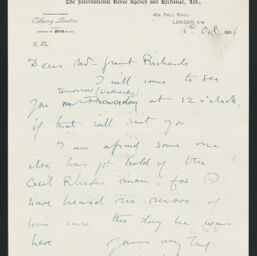 The International Horse Agency and Exchange, Ltd.,
48A, Pall Mall,
London, S.W.
16th Oct 190
Dear Mr. Grant Richards
I will come to see
tomorrow (Wednesday)
you on Thursday at 12 o'clock,
if that will suit you.
I am afraid some one
else has got hold of the
Cecil Rhodes man, for I
have heard no more of
him since the day he was
here.
Yours very truly